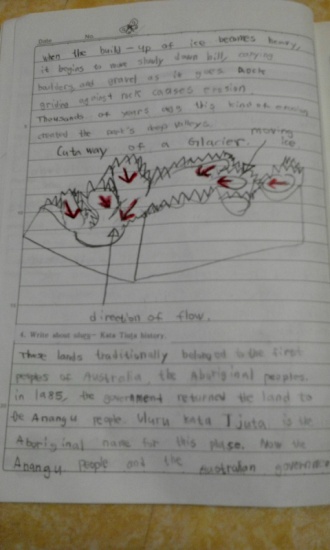 Date No
when the build-up of ice becomes heavy,
it begins to move slowly down hill, carrying
boulders and gravel as it goes
grinding against rock causes erosion.
Thousands of years ago this kind of
created the deep valleys.
Cutaway of a Glacier.
moving
ice
direction of flow.
4. Write about Uluru- Kata Tjuta history.
These lands traditionally belonged to the first
peoples of Australia, the Aboriginal peoples.
in 1985, the government returned the land to
the Anangu people. Uluru kata Tjuta is the
Aboriginal name for this place. Now the
Anangu people and the Australian government